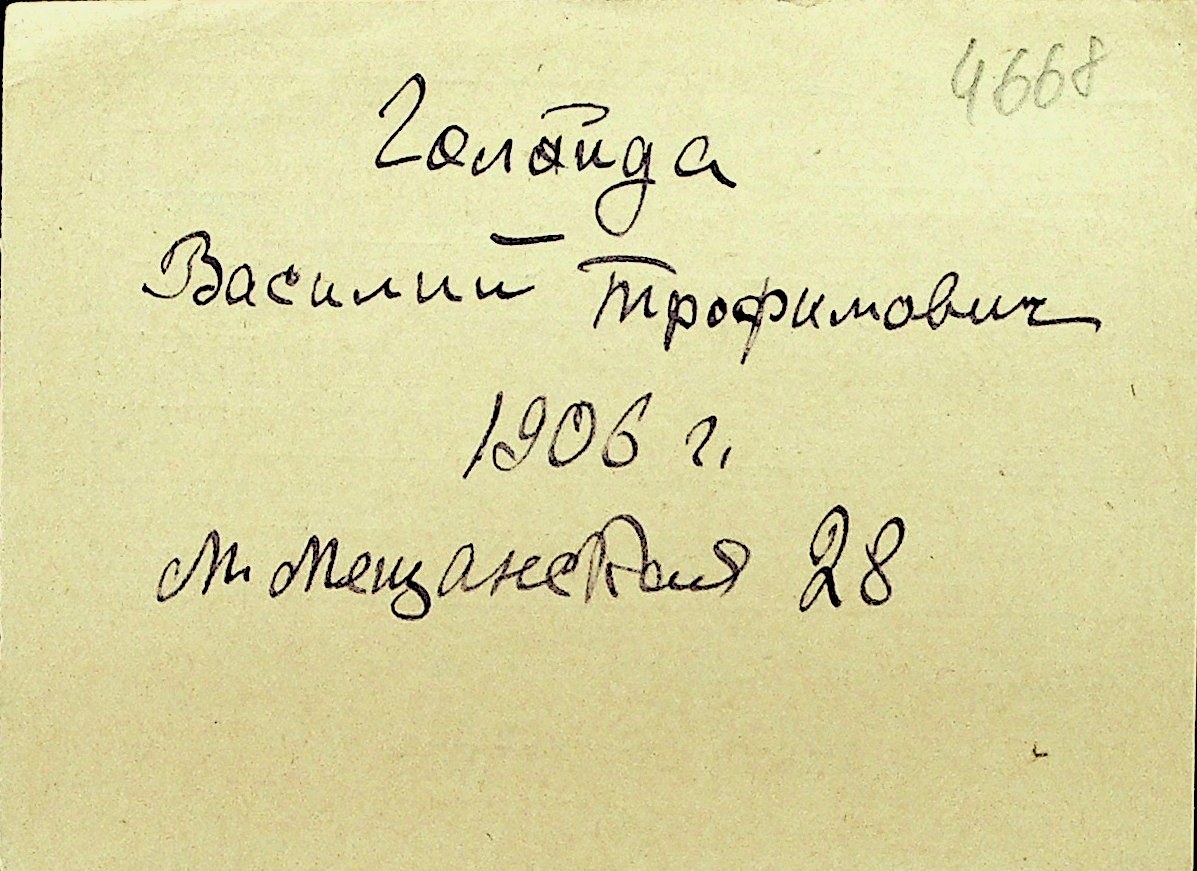 4668
Галайда
Василий Трофимович
1906 г.
М. Мещанская 28